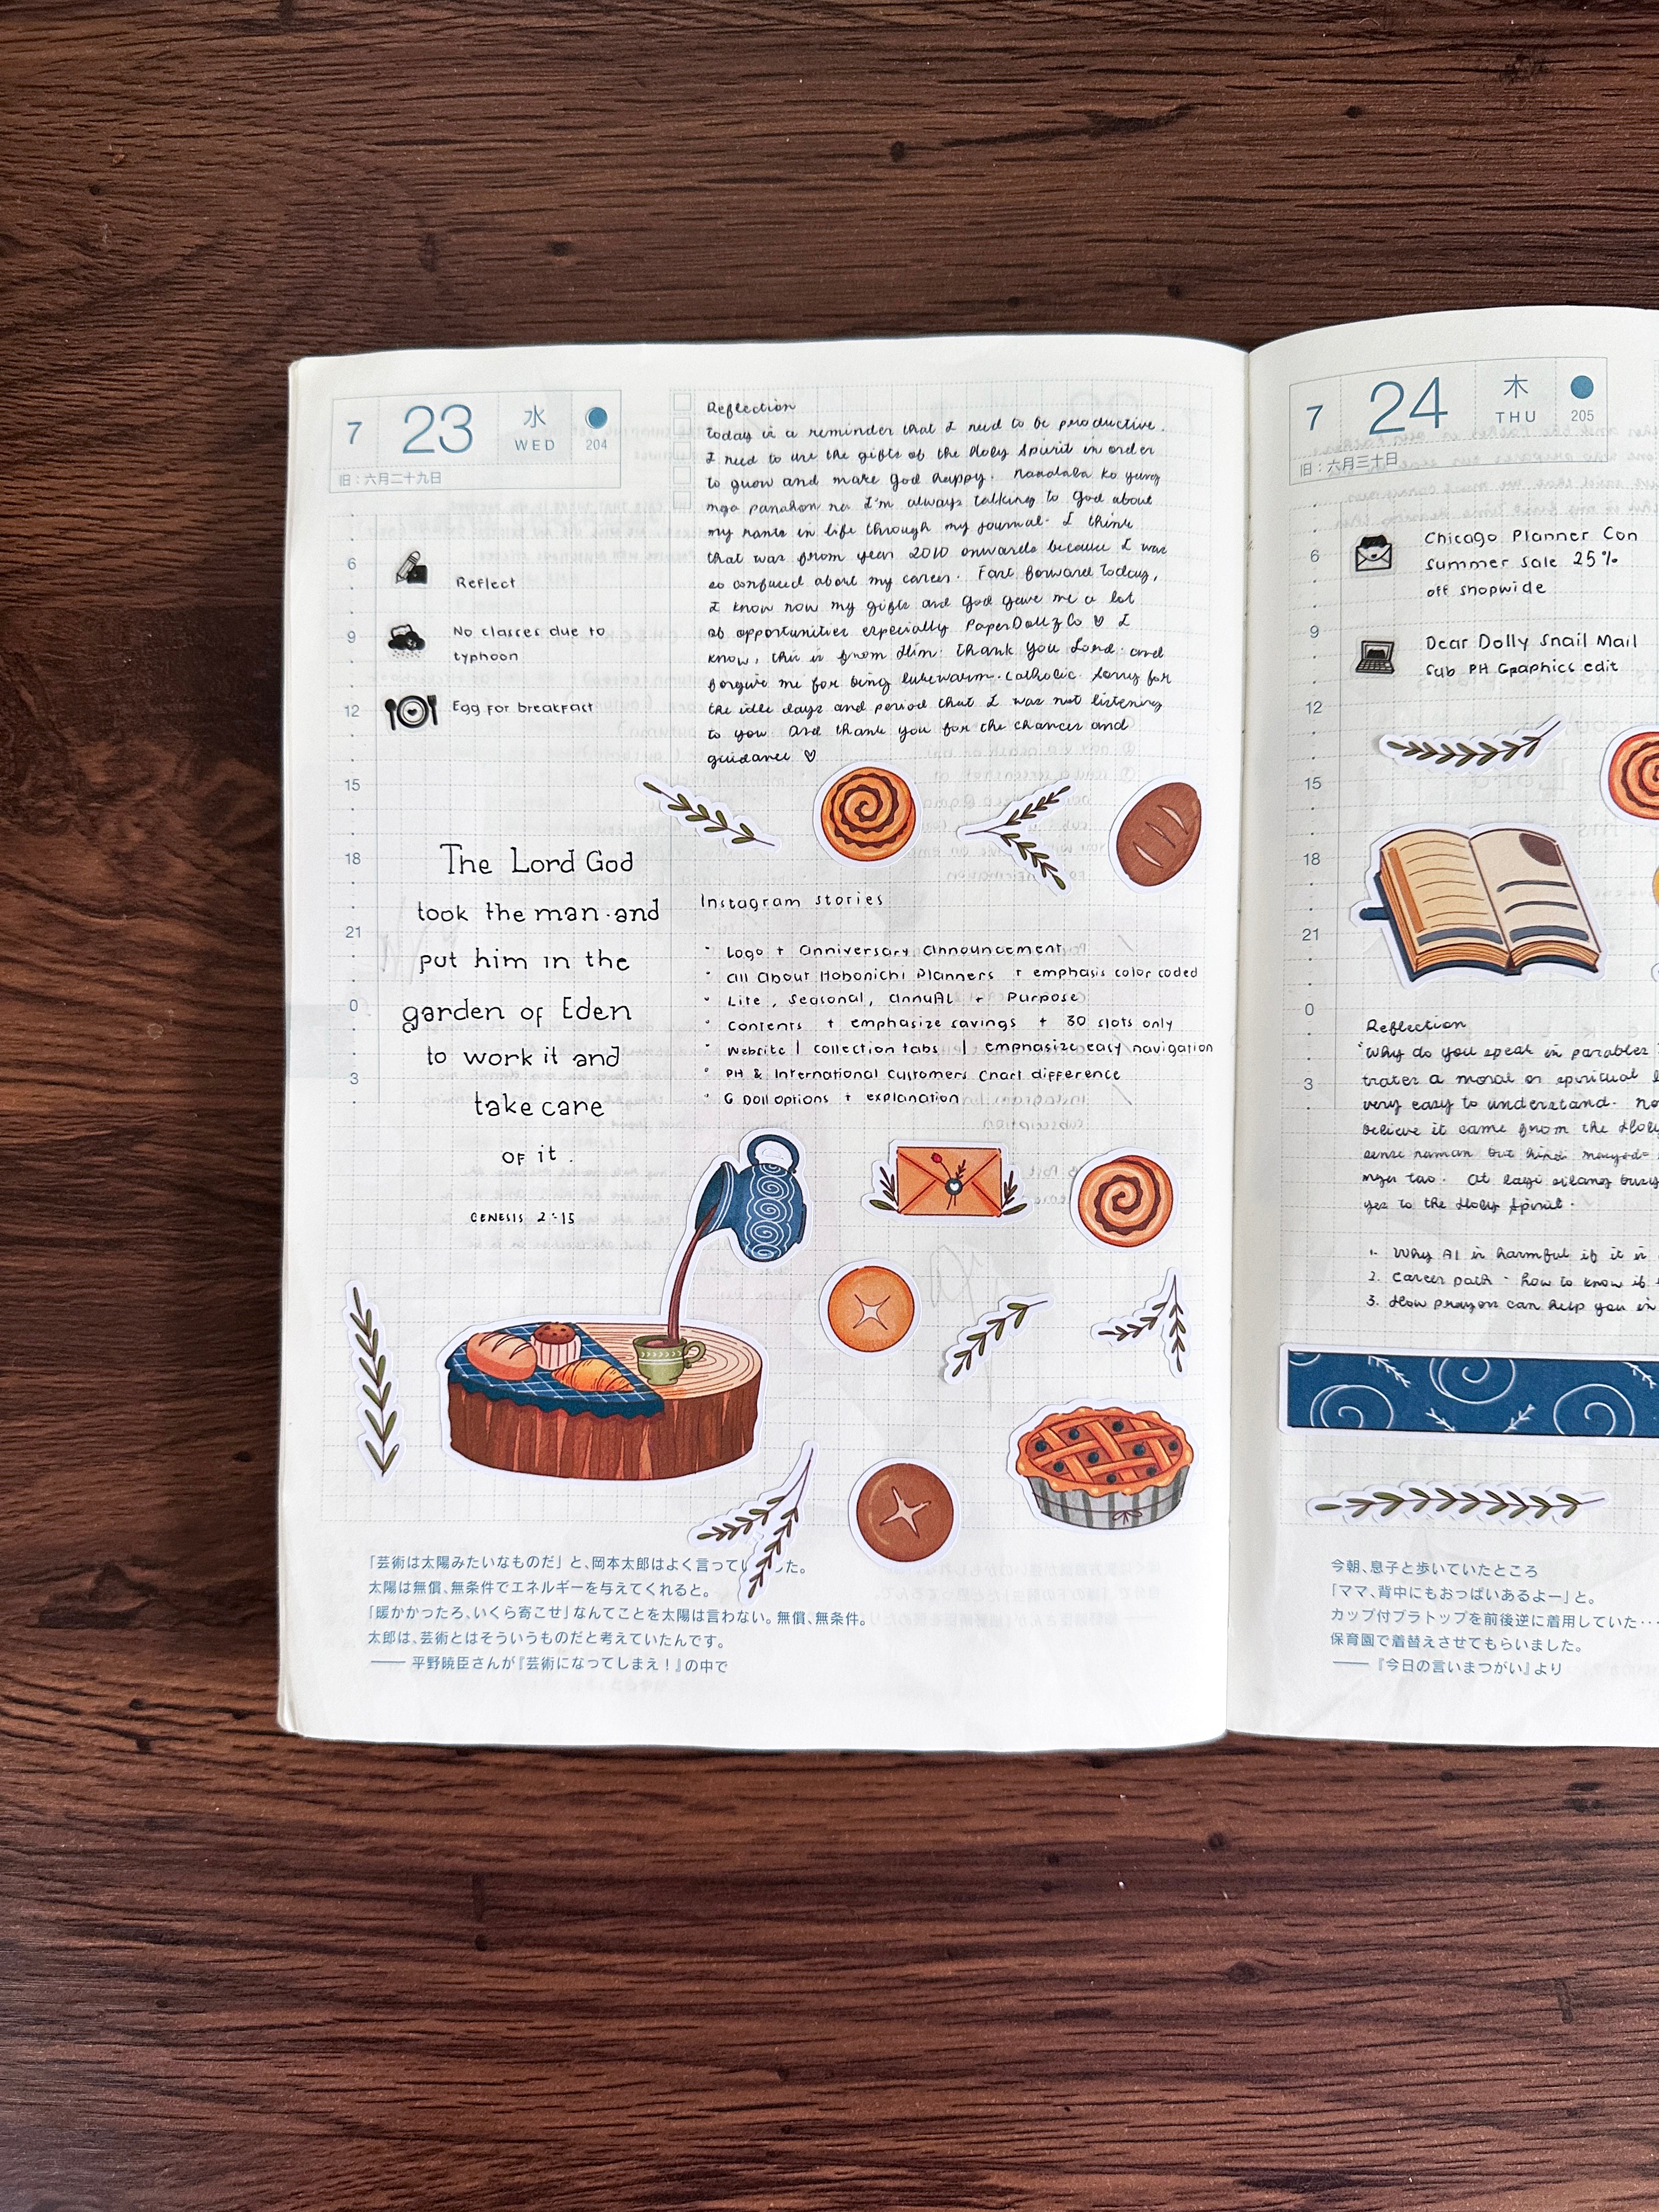 7 23 水 WED 204
旧：六月二十九日
6
Reflect
9
No classes due to
typhoon
12
Egg for breakfast
15
18
21
0
3
The Lord God
took the man and
put him in the
garden of Eden
to work it and
take care
of it.
GENESIS 2:15
Reflection
Today is a reminder that I need to be productive.
I need to use the gifts of the Holy Spirit in order
to grow and make God happy. Naaalala ko yung
mga panahon na I'm always talking to God about
my rants in life through my journal. I think
that was from year 2010 onwards because I was
so confused about my career. Fast forward today,
I know now my gifts and God gave me a lot
of opportunities especially PaperDollzCo ♡ I
know, this is from Him. Thank you Lord and
forgive me for being lukewarm Catholic. Sorry for
the idle days and period that I was not listening
to you. And thank you for the chances and
guidance ♡
Instagram stories
• Logo + anniversary announcement
• All about Hobonichi Planners + emphasis color coded
• Lite, Seasonal, Annual + Purpose
• Contents + emphasize savings + 30 slots only
• Website | collection tabs | emphasize easy navigation
• PH & International Customers Chart difference
• G Doll options + explanation
「芸術は太陽みたいなものだ」と、岡本太郎はよく言って した。
太陽は無償、無条件でエネルギーを与えてくれると。
「暖かかったろ、いくら寄こせ」なんてことを太陽は言わない。無償、無条件。
太郎は、芸術とはそういうものだと考えていたんです。
—— 平野暁臣さんが『芸術になってしまえ！』の中で
7 24 木 THU 205
旧：六月三十日
6
Chicago Planner Con
Summer Sale 25%
off shopwide
9
Dear Dolly Snail Mail
Sub PH Graphics edit
12
15
18
21
0
3
Reflection
"Why do you speak in parables
trates a moral or spiritual
very easy to understand.
believe it came from the Holy
sense naman but hindi
nga tao. At lagi silang busy
yes to the Holy Spirit.
1. Why AI is harmful if it is
2. Career path - how to know if
3. How prayers can help you in
今朝、息子と歩いていたところ
「ママ、背中にもおっぱいあるよー」と。
カップ付ブラトップを前後逆に着用していた・・・
保育園で着替えさせてもらいました。
—— 『今日の言いまつがい』より